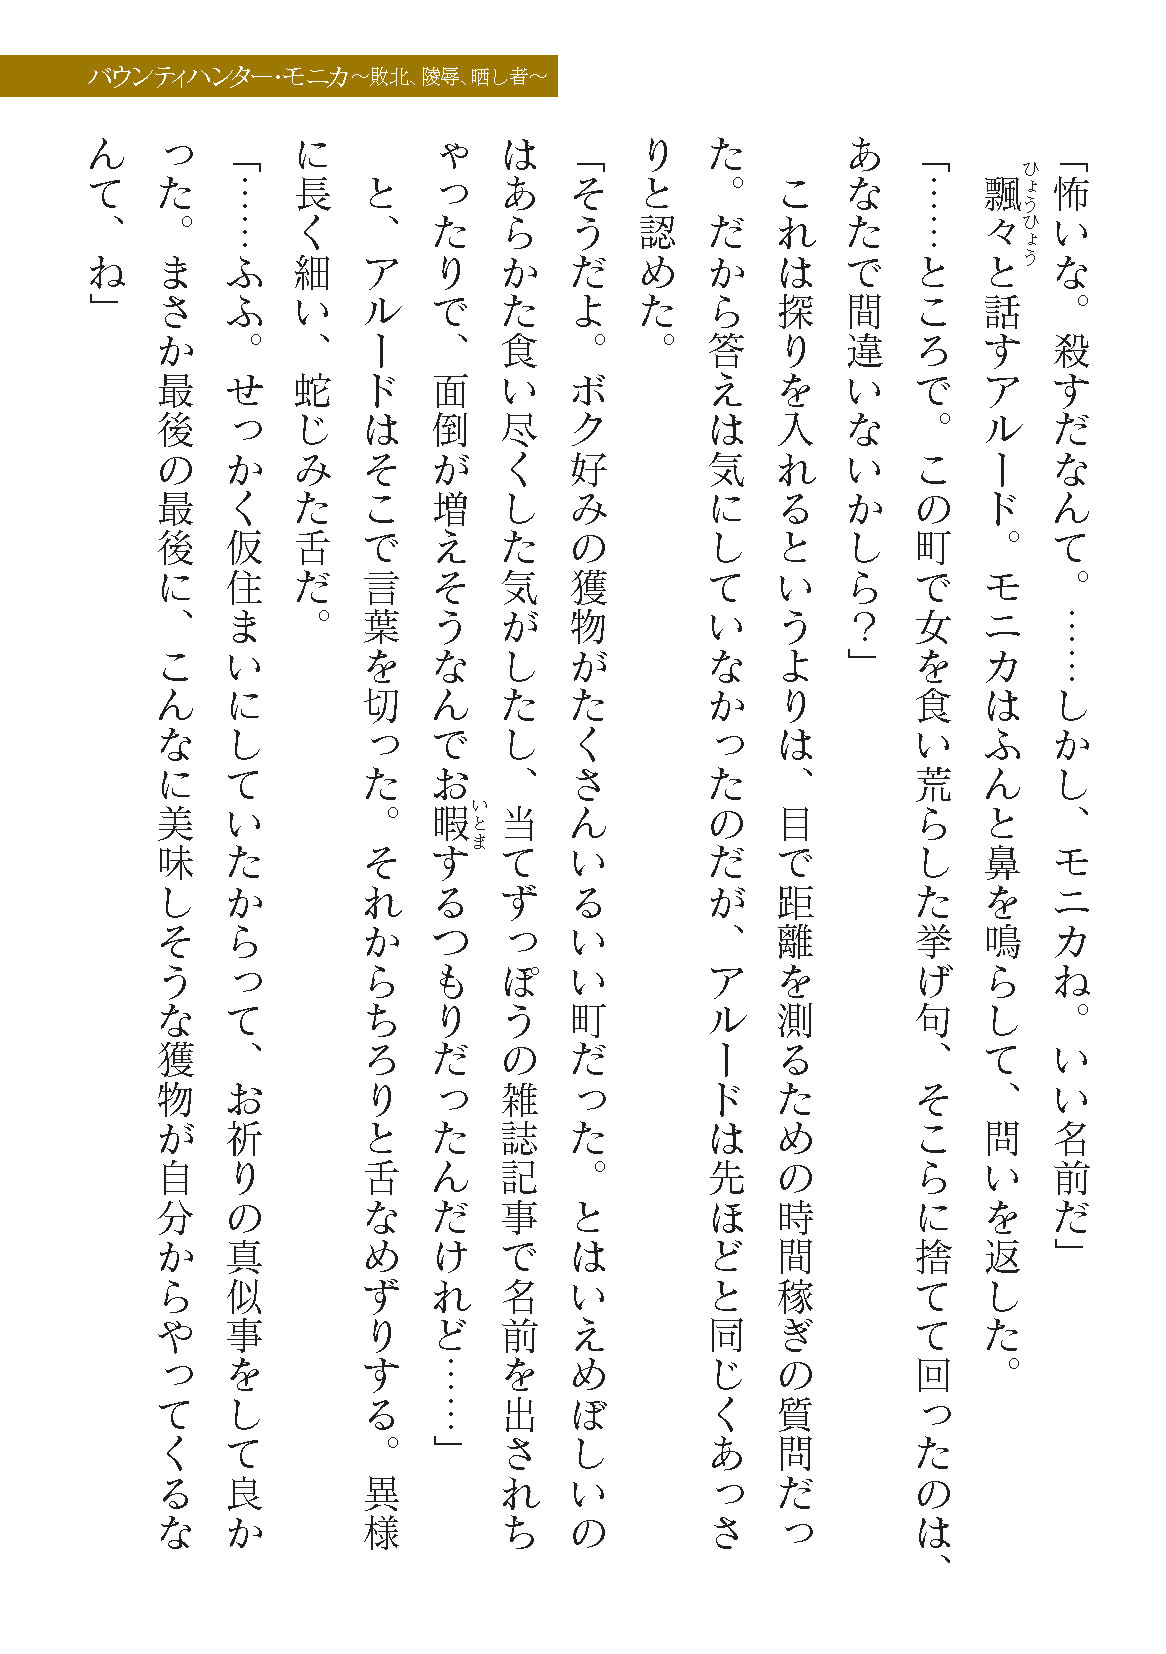 バウンティハンター・モニカ～敗北、陵辱、晒し者～
「怖いな。殺すだなんて。……しかし、モニカね。いい名前だ」
　飄々と話すアルード。モニカはふんと鼻を鳴らして、問いを返した。
ひょうひょう
「……ところで。この町で女を食い荒らした挙げ句、そこらに捨てて回ったのは、
あなたで間違いないかしら？」
　これは探りを入れるというよりは、目で距離を測るための時間稼ぎの質問だっ
た。だから答えは気にしていなかったのだが、アルードは先ほどと同じくあっさ
りと認めた。
「そうだよ。ボク好みの獲物がたくさんいるいい町だった。とはいえめぼしいの
はあらかた食い尽くした気がしたし、当てずっぽうの雑誌記事で名前を出されち
ゃったりで、面倒が増えそうなんでお暇するつもりだったんだけれど……」
いとま
　と、アルードはそこで言葉を切った。それからちろりと舌なめずりする。異様
に長く細い、蛇じみた舌だ。
「……ふふ。せっかく仮住まいにしていたからって、お祈りの真似事をして良か
った。まさか最後の最後に、こんなに美味しそうな獲物が自分からやってくるな
んて、ね」